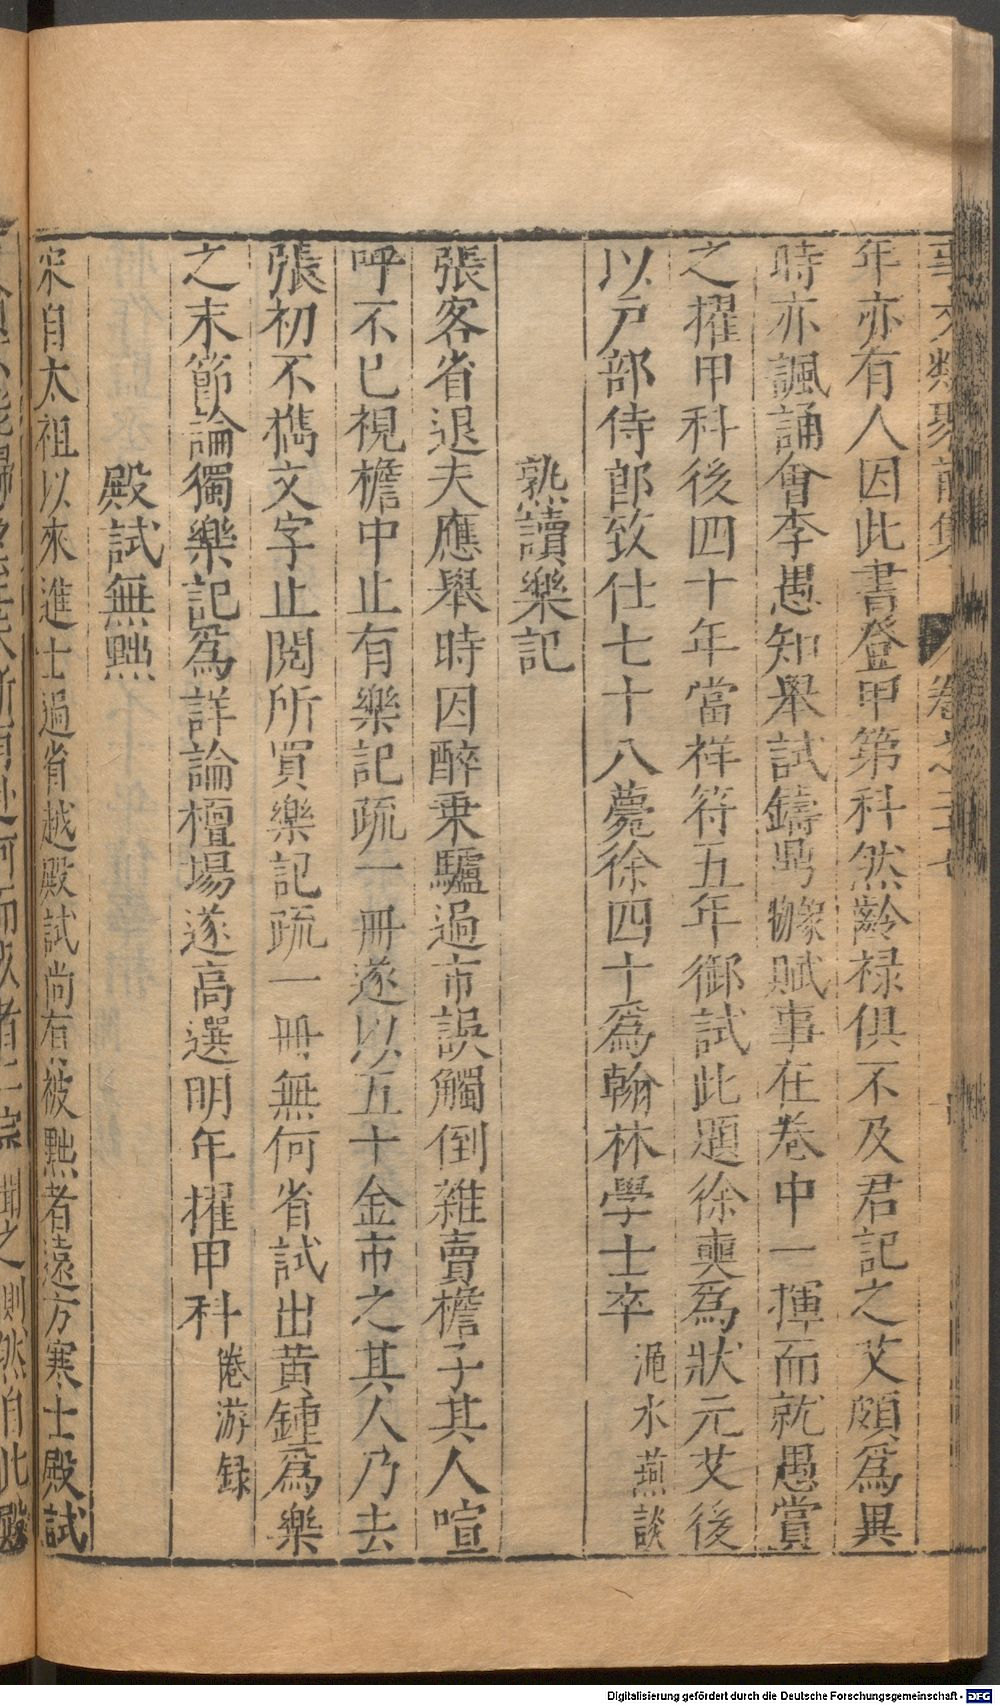 年亦有人因此書登甲第科然齡禄俱不及君記之艾頗爲異
時亦諷誦會李愚知舉試鑄鼎象物賦事在卷中一揮而就愚賞
之擢甲科後四十年當祥符五年御試此題徐奭爲狀元艾後
以戸部侍郎致仕七十八薨徐四十爲翰林學士卒 澠水燕談
熟讀樂記
張客省退夫應舉時因醉乗驢過市誤觸倒雜賣檐子其人喧
呼不已視檐中止有樂記疏一冊遂以五十金市之其人乃去
張初不櫽文字止閲所買樂記疏一冊無何省試出黄鍾爲樂
之末節論獨樂記爲詳論檀場遂高選明年擢甲科 倦游録
殿試無黜
宋自太祖以來進士過省越殿試尚有被黜者遠方寒士殿試
Digitalisierung gefördert durch die Deutsche Forschungsgemeinschaft - DFG